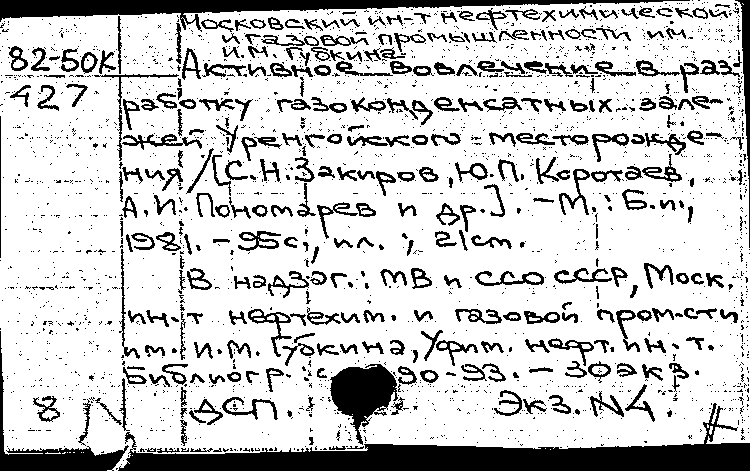 Московский ин-т нефтехимической
и газовой промышленности им.
И.М. Губкина.
82-50К Активное вовлечение в раз-
427 работку газоконденсатных зале-
жей Уренгойского месторожде-
ния / [С.Н. Закиров, Ю.П. Коротаев,
А.И. Пономарев и др.]. - М.: Б.и.,
1981. - 95 с., ил.; 21 см.
В надзаг.: МВ и ССО СССР, Моск.
ин-т нефтехим. и газовой пром-сти
им. И.М. Губкина, Уфим. нефт. ин-т.
Библиогр.: с. 90-93. - 30 экз.
8 ДСП. Экз. N4.